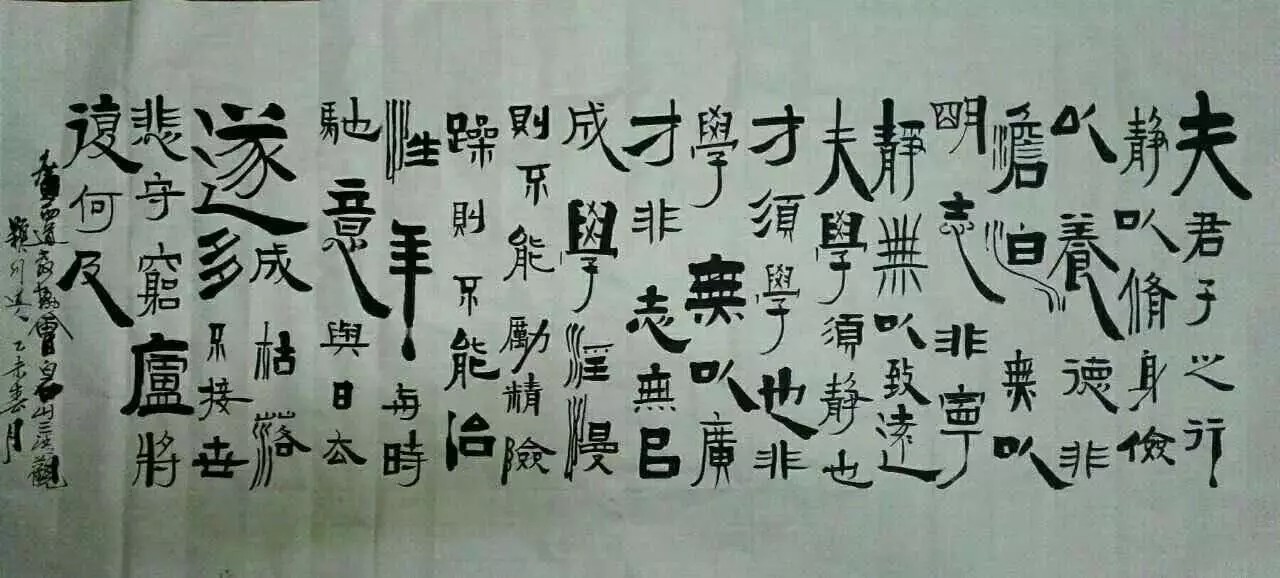 夫君子之行
静以脩身儉
以養德非
澹泊無以
明志非寧
静無以致遠
夫學須静也
才須學也非
學無以廣
才非志無㠯
成學淫漫
則不能勵精險
躁則不能治
性年每時
馳意與日去
遂成枯落
多不接世
悲守窮廬將
復何及
乙未春月